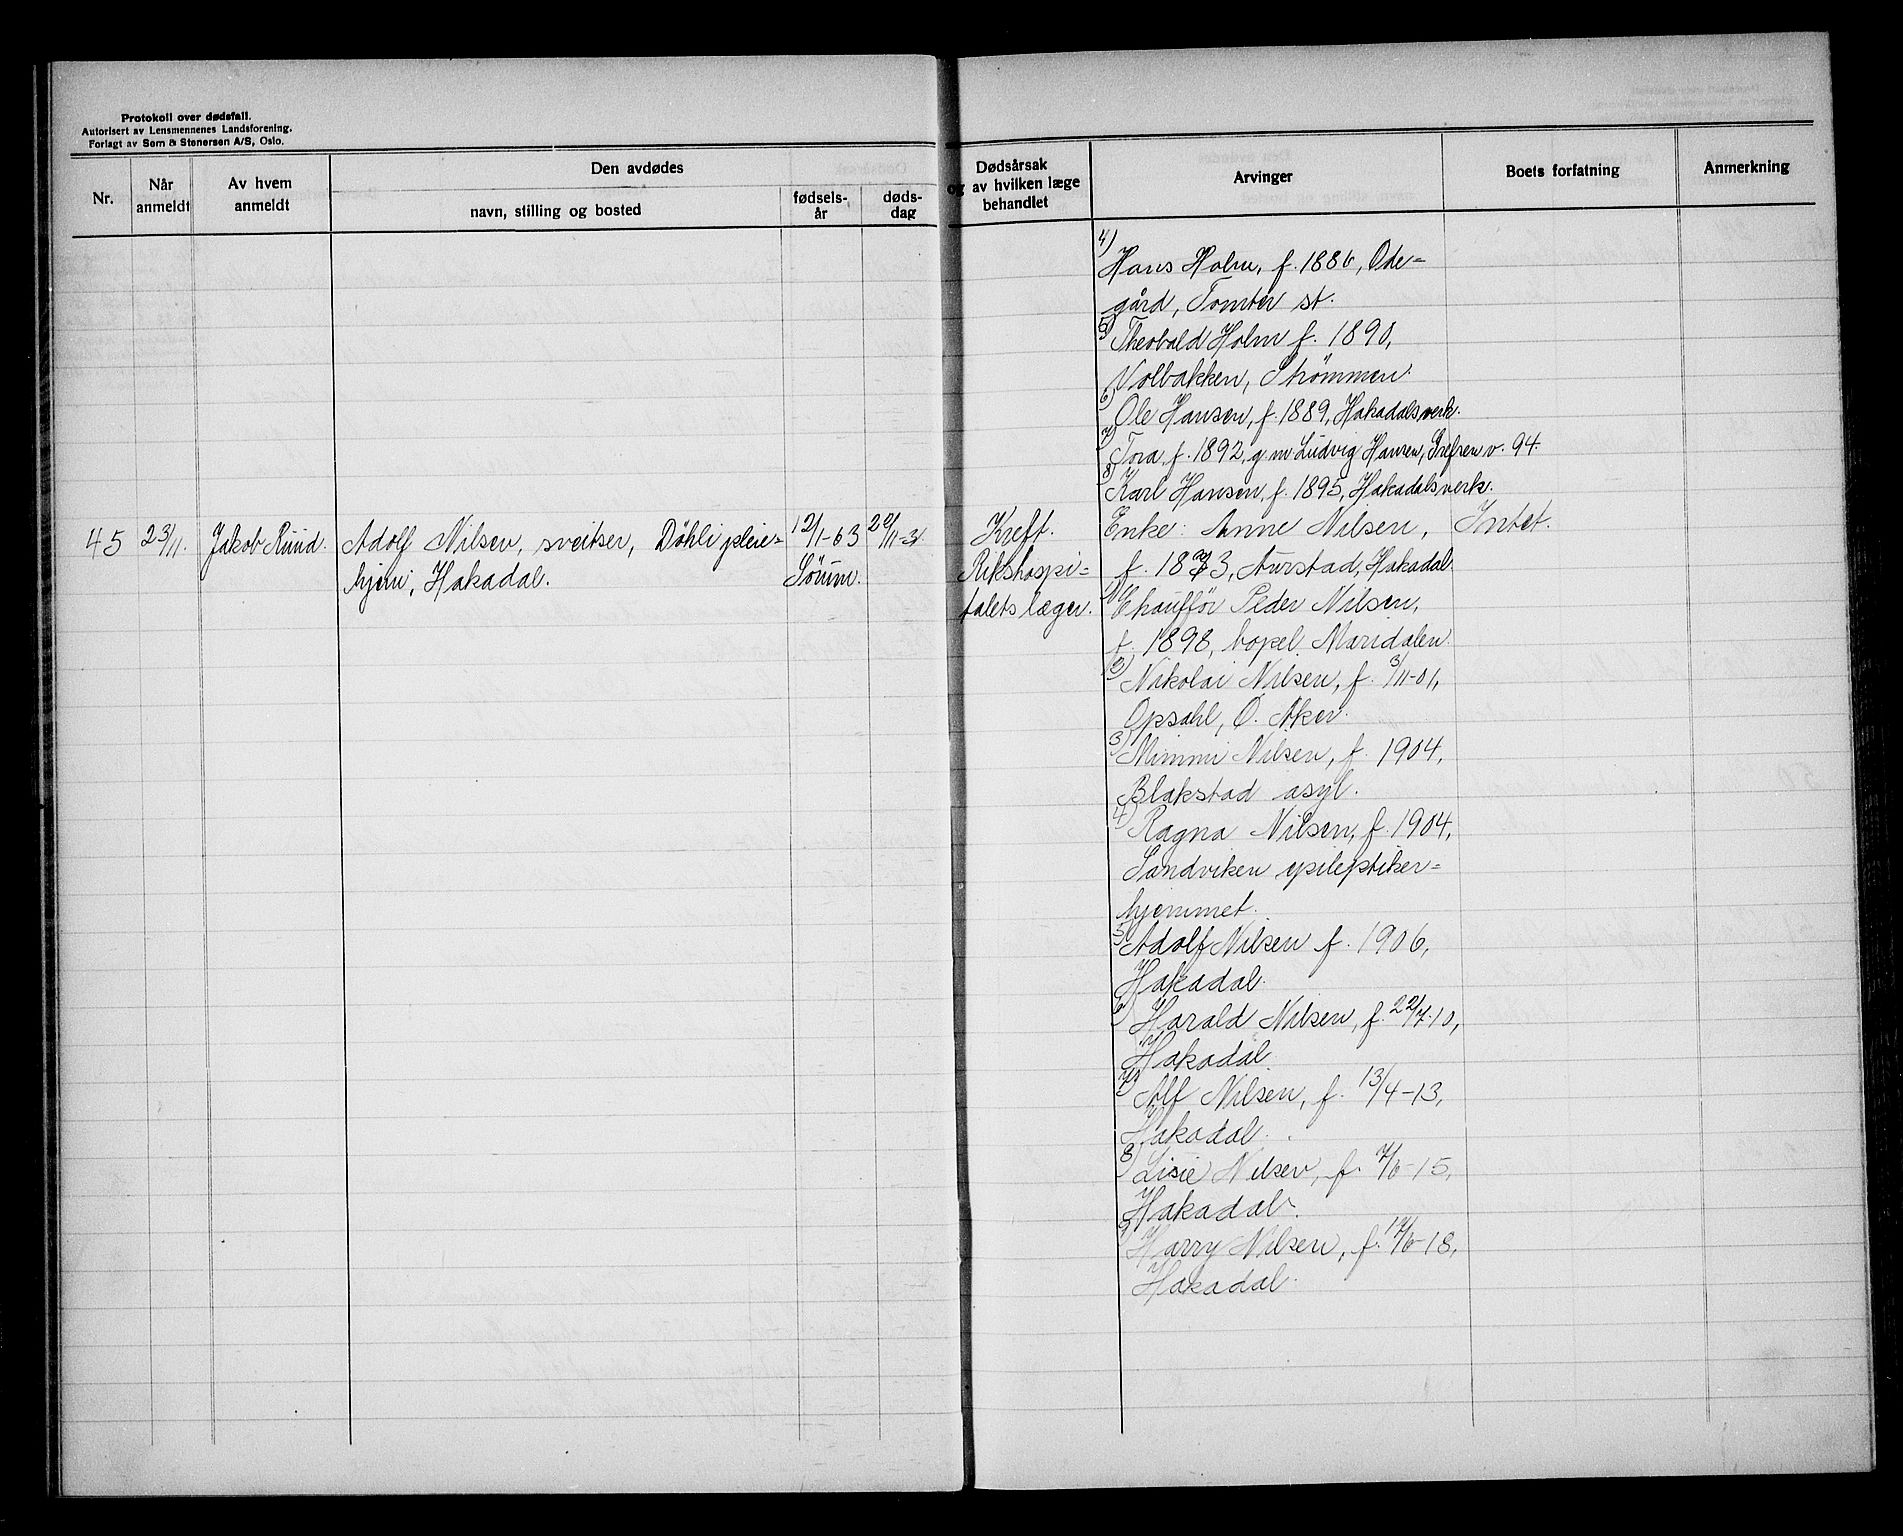 Protokoll over dødsfall.
Autorisert av Lensmennenes Landsforening.
Forlagt av Sem & Stenersen A/S, Oslo.
Nr.
Når anmeldt
Av hvem anmeldt
Den avdødes
navn, stilling og bosted
fødsels-år
døds-dag
Dødsårsak
og av hvilken læge
behandlet
Arvinger
Boets forfatning
Anmerkning
4) Hans Holm, f. 1886, Ode-
gård, Tomter st.
5) Theobald Holm f. 1890,
Volbakken, Strømmen.
6) Ole Hansen, f. 1889, Hakadalsverk.
7) Tora, f. 1892, g.m Ludvig Hansen, Grefsen v. 94.
8) Karl Hansen, f. 1895, Hakadalsverk.
45 23/11. Jakob Ruud. Adolf Nilsen, sveitser, Døhli pleie=
hjem, Hakadal.
12/1-63
Sørum.
20/11-31
Kreft.
Rikshospi=
talets læger.
Enke: Anne Nilsen, Intet.
f. 1873, Aurstad, Hakadal.
1) Chauffør Peder Nilsen,
f. 1898, bopel Maridalen.
2) Nikolai Nilsen, f. 3/11-01,
Opsahl, Ø. Aker.
3) Mimmi Nilsen, f. 1904,
Blakstad asyl.
4) Ragna Nilsen, f. 1904,
Sandviken epileptiker=
hjemmet.
5) Adolf Nilsen f. 1906,
Hakadal.
6) Harald Nilsen, f. 22/7-10,
Hakadal.
7) Alf Nilsen, f. 13/4-13,
Hakadal.
8) Lisie Nilsen, f. 7/6-15,
Hakadal.
9) Harry Nilsen, f. 17/6-18,
Hakadal.